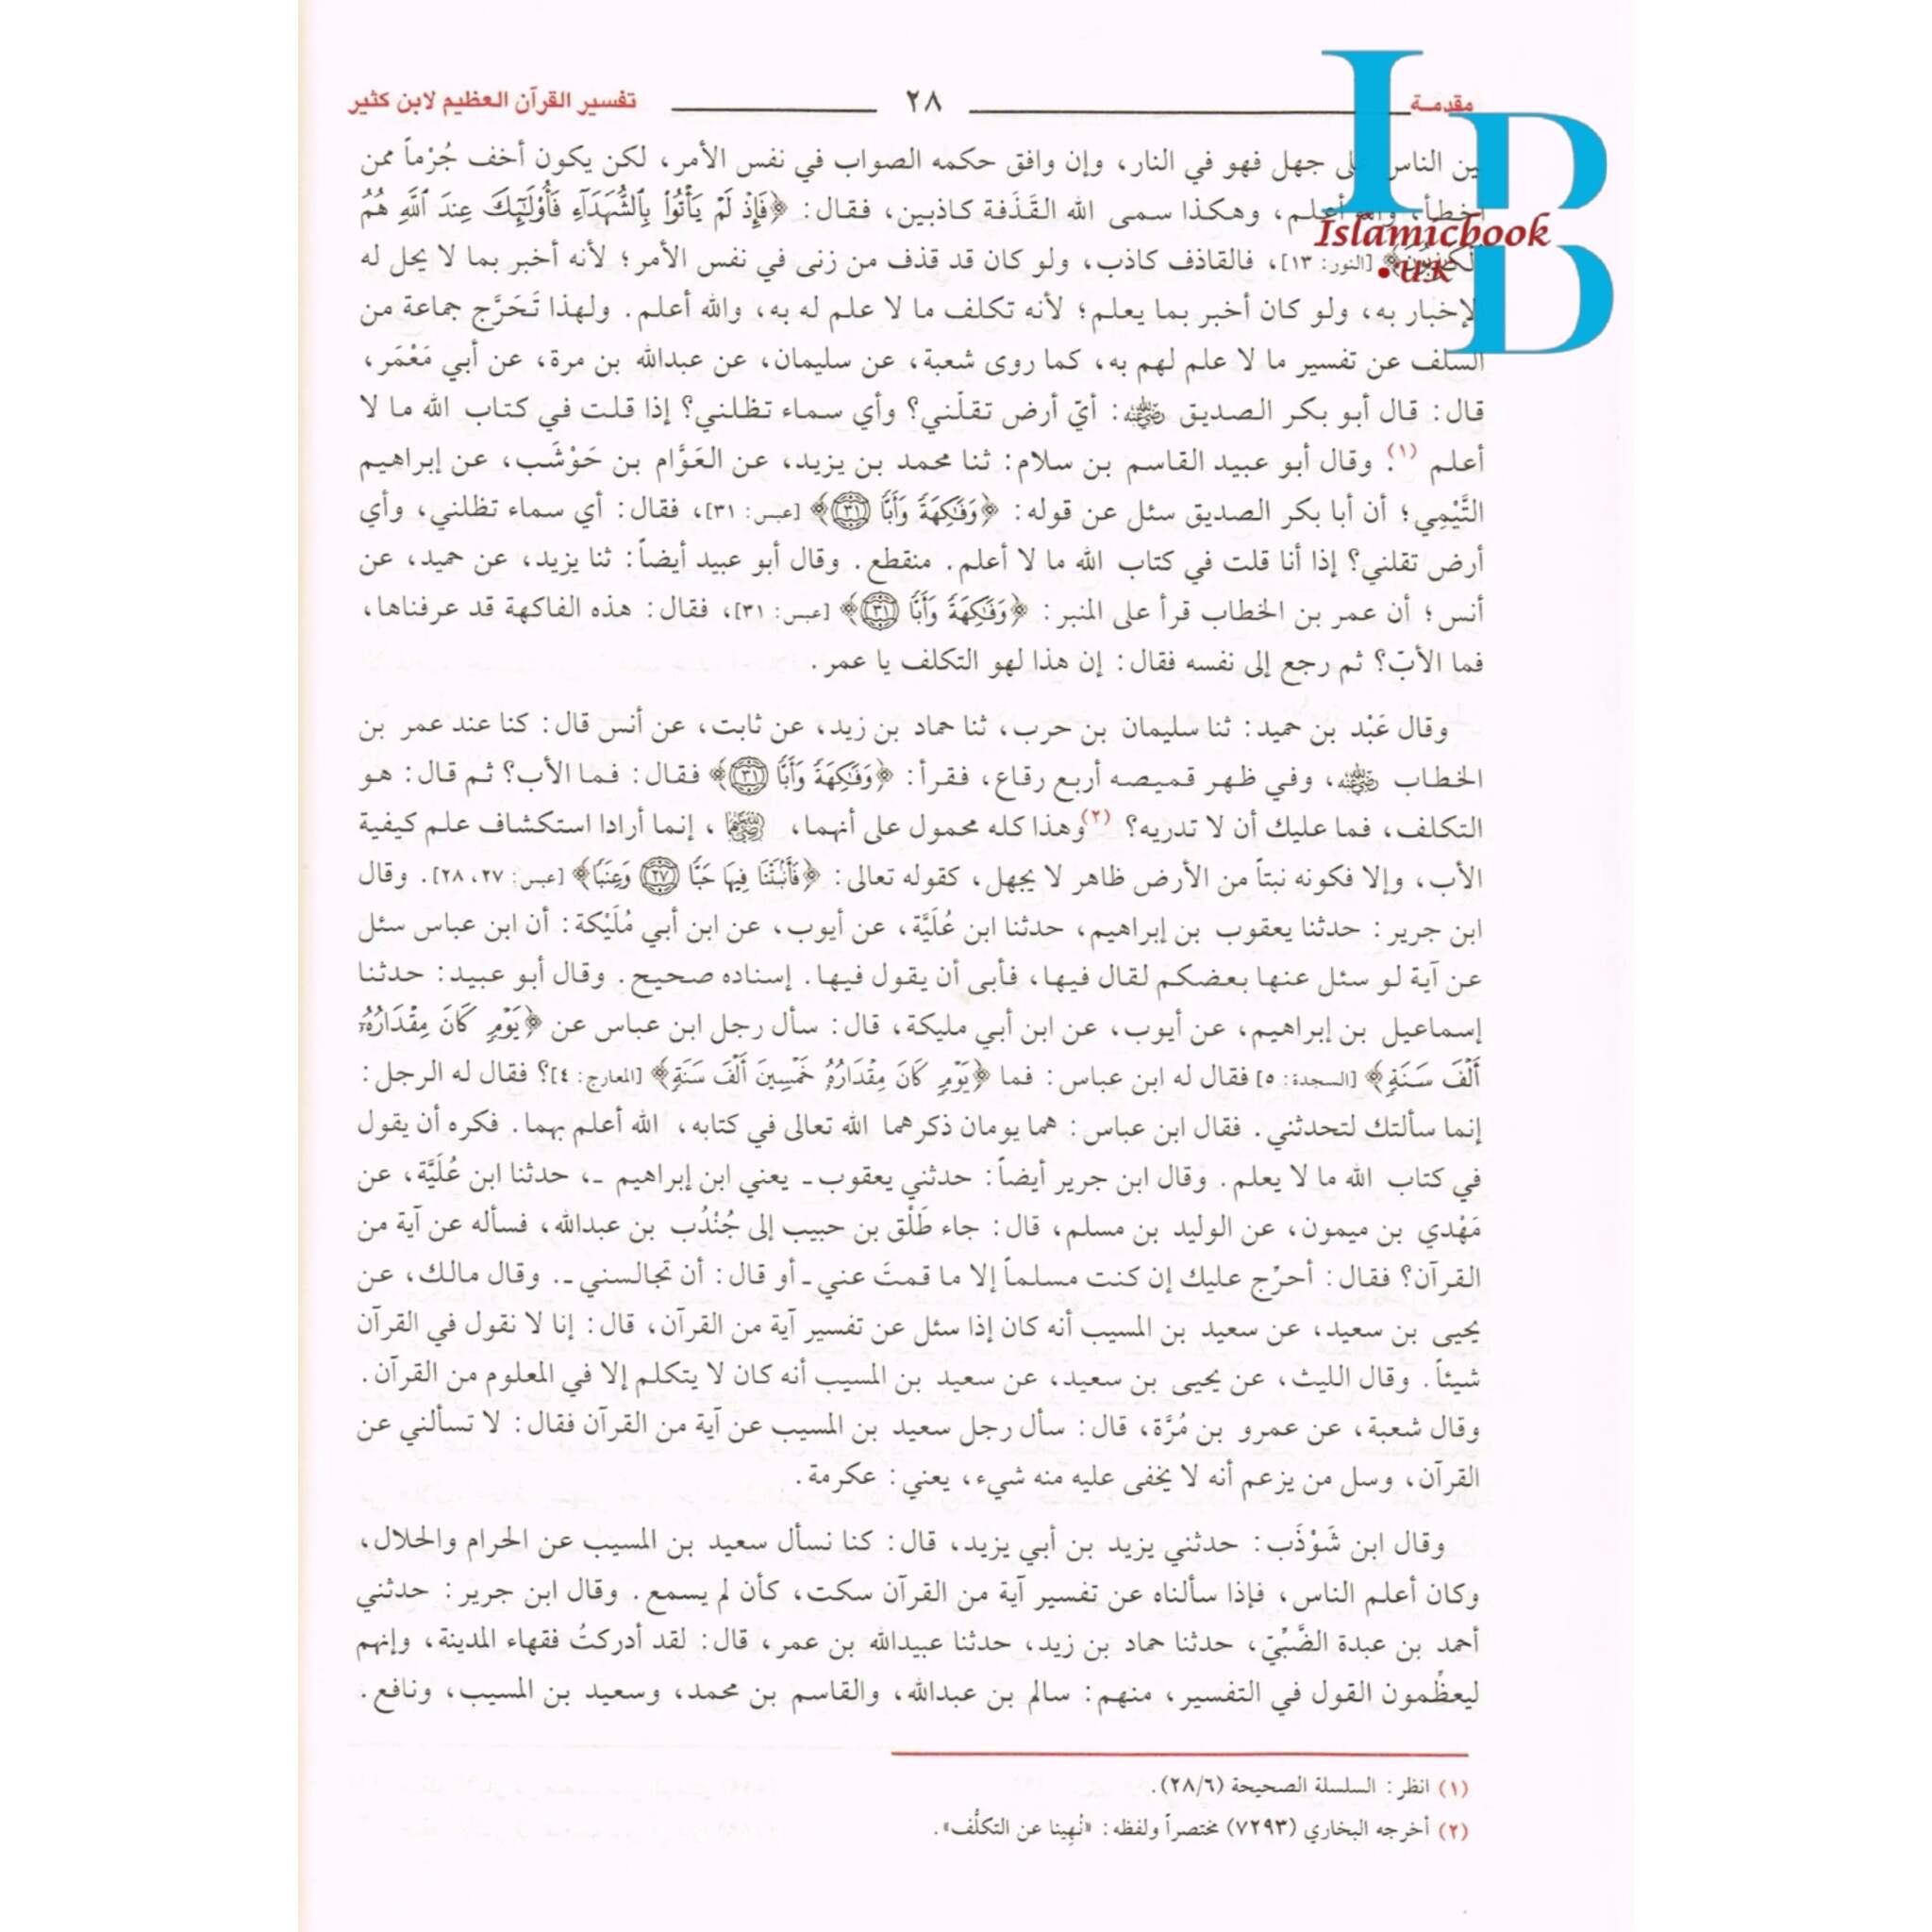 مقدمة ٢٨ تفسير القرآن العظيم لابن كثير
IBD
Islamicbook
.UK
ين الناس على جهل فهو في النار، وإن وافق حكمه الصواب في نفس الأمر، لكن يكون أخف جُرْماً ممن
أخطأ، والله أعلم، وهكذا سمى الله القَذَفة كاذبين، فقال: ﴿فَإِذْ لَمْ يَأْتُوا۟ بِٱلشُّهَدَآءِ فَأُو۟لَٰٓئِكَ عِندَ ٱللَّهِ هُمُ
لكَٰذِبُونَ﴾ [النور: ١٣]، فالقاذف كاذب، ولو كان قد قذف من زنى في نفس الأمر؛ لأنه أخبر بما لا يحل له
لإخبار به، ولو كان أخبر بما يعلم؛ لأنه تكلف ما لا علم له به، والله أعلم. ولهذا تَحَرَّج جماعة من
السلف عن تفسير ما لا علم لهم به، كما روى شعبة، عن سليمان، عن عبدالله بن مرة، عن أبي مَعْمَر،
قال: قال أبو بكر الصديق رضي الله عنه: أيّ أرض تقلّني؟ وأي سماء تظلني؟ إذا قلت في كتاب الله ما لا
أعلم (١). وقال أبو عبيد القاسم بن سلام: ثنا محمد بن يزيد، عن العَوَّام بن حَوْشَب، عن إبراهيم
التَّيْمِي؛ أن أبا بكر الصديق سئل عن قوله: ﴿وَفَٰكِهَةً وَأَبًّا ٣١﴾ [عبس: ٣١]، فقال: أي سماء تظلني، وأي
أرض تقلني؟ إذا أنا قلت في كتاب الله ما لا أعلم. منقطع. وقال أبو عبيد أيضاً: ثنا يزيد، عن حميد، عن
أنس؛ أن عمر بن الخطاب قرأ على المنبر: ﴿وَفَٰكِهَةً وَأَبًّا ٣١﴾ [عبس: ٣١]، فقال: هذه الفاكهة قد عرفناها،
فما الأبّ؟ ثم رجع إلى نفسه فقال: إن هذا لهو التكلف يا عمر.
وقال عَبْد بن حميد: ثنا سليمان بن حرب، ثنا حماد بن زيد، عن ثابت، عن أنس قال: كنا عند عمر بن
الخطاب رضي الله عنه، وفي ظهر قميصه أربع رقاع، فقرأ: ﴿وَفَٰكِهَةً وَأَبًّا ٣١﴾ فقال: فما الأب؟ ثم قال: هو
التكلف، فما عليك أن لا تدريه؟ (٢) وهذا كله محمول على أنهما، ، إنما أرادا استكشاف علم كيفية
الأب، وإلا فكونه نبتاً من الأرض ظاهر لا يجهل، كقوله تعالى: ﴿فَأَنۢبَتْنَا فِيهَا حَبًّا ٢٧ وَعِنَبًا﴾ [عبس: ٢٧، ٢٨]. وقال
ابن جرير: حدثنا يعقوب بن إبراهيم، حدثنا ابن عُلَيَّة، عن أيوب، عن ابن أبي مُلَيْكة: أن ابن عباس سئل
عن آية لو سئل عنها بعضكم لقال فيها، فأبى أن يقول فيها. إسناده صحيح. وقال أبو عبيد: حدثنا
إسماعيل بن إبراهيم، عن أيوب، عن ابن أبي مليكة، قال: سأل رجل ابن عباس عن ﴿يَوْمٍ كَانَ مِقْدَارُهُۥٓ
أَلْفَ سَنَةٍ﴾ [السجدة: ٥] فقال له ابن عباس: فما ﴿يَوْمٍ كَانَ مِقْدَارُهُۥ خَمْسِينَ أَلْفَ سَنَةٍ﴾ [المعارج: ٤]؟ فقال له الرجل:
إنما سألتك لتحدثني. فقال ابن عباس: هما يومان ذكرهما الله تعالى في كتابه، الله أعلم بهما. فكره أن يقول
في كتاب الله ما لا يعلم. وقال ابن جرير أيضاً: حدثني يعقوب ـ يعني ابن إبراهيم ـ، حدثنا ابن عُلَيَّة، عن
مَهْدي بن ميمون، عن الوليد بن مسلم، قال: جاء طَلْق بن حبيب إلى جُنْدُب بن عبدالله، فسأله عن آية من
القرآن؟ فقال: أحرِّج عليك إن كنت مسلماً إلا ما قمتَ عني ـ أو قال: أن تجالسني ـ. وقال مالك، عن
يحيى بن سعيد، عن سعيد بن المسيب أنه كان إذا سئل عن تفسير آية من القرآن، قال: إنا لا نقول في القرآن
شيئاً. وقال الليث، عن يحيى بن سعيد، عن سعيد بن المسيب أنه كان لا يتكلم إلا في المعلوم من القرآن.
وقال شعبة، عن عمرو بن مُرَّة، قال: سأل رجل سعيد بن المسيب عن آية من القرآن فقال: لا تسألني عن
القرآن، وسل من يزعم أنه لا يخفى عليه منه شيء، يعني: عكرمة.
وقال ابن شَوْذَب: حدثني يزيد بن أبي يزيد، قال: كنا نسأل سعيد بن المسيب عن الحرام والحلال،
وكان أعلم الناس، فإذا سألناه عن تفسير آية من القرآن سكت، كأن لم يسمع. وقال ابن جرير: حدثني
أحمد بن عبدة الضَّبِّيّ، حدثنا حماد بن زيد، حدثنا عبيدالله بن عمر، قال: لقد أدركتُ فقهاء المدينة، وإنهم
ليعظِّمون القول في التفسير، منهم: سالم بن عبدالله، والقاسم بن محمد، وسعيد بن المسيب، ونافع.
(١) انظر: السلسلة الصحيحة (٢٨/٦).
(٢) أخرجه البخاري (٧٢٩٣) مختصراً ولفظه: «نُهِينا عن التكلُّف».